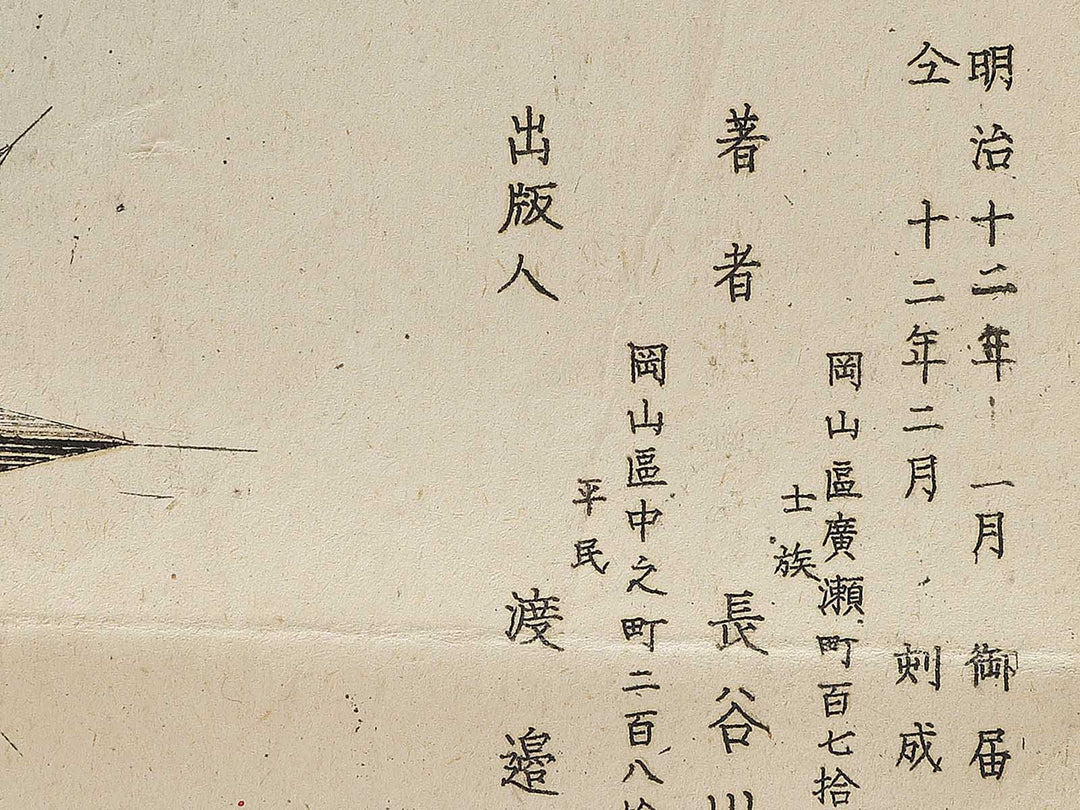 明治十二年一月 御届
仝 十二年二月 刻成
岡山區廣瀬町百七拾
士族
著者 長谷川
岡山區中之町二百八拾
平民
出版人 渡邉